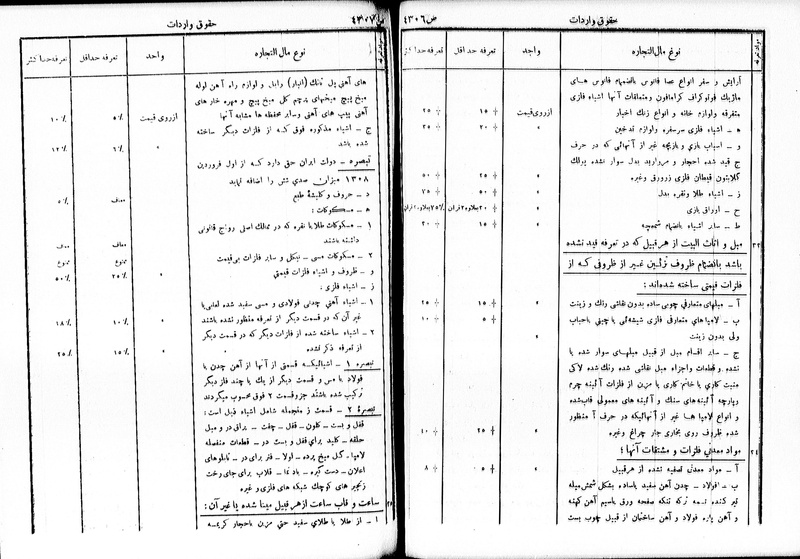 حقوق واردات
ص ۴۳۰۶
نوع مال‌التجاره
واحد
تعرفه حداقل
تعرفه حداکثر
آرایش و سفر انواع عصا فانوس بانضمام فانوس های
ماژیک فونوگراف گرامافون و متعلقات آنها اشیاء فلزی
متفرقه ولوازم خانه و انواع زنک اخبار
ازروی قیمت
۱۵
۲۵
ه - اشیاء فلزی سرسفره ولوازم تدخین
۲۰
۲۵
و - اسباب بازی و بازیچه غیر از آنهائی که در حرف
ج قید شده احجار و مروارید بدل سوار نشده پولک
گلابتون قیطان فلزی زرورق وغیره
۲۵
۵۰
ز - اشیاء طلا ونقره بدل
۵۰
۷۵
ح - اوراق بازی
ط - سایر اشیاء بانضمام شمعچه
۱۵
۲۰
۲۳
مبل و اثاث البیت از هرقبیل که در تعرفه قید نشده
باشد بانضمام ظروف تزئین غیر از ظروفی که از
فلزات قیمتی ساخته شده‌اند:
آ - مبلهای متعارفی چوبی ساده بدون نقاشی رنک و زینت
۱۵
۲۵
ب - لامپا های متعارفی فلزی شیشه‌ئی یا چینی باحباب
۵
۱۰
ولی بدون زینت
ج - سایر اقسام مبل از قبیل مبلهای سوار شده یا
نشده و قطعات واجزاء مبل نقاشی شده رنک شده لاکی
منبت کاری یا خاتم کاری یا مزین از فلزات آئینه چرم
وپارچه آئینه‌های سنک و آئینه های معمولی قاب‌شده
و انواع لامپا ها غیر از آنهائیکه در حرف آ منظور
شده ظروف روی بخاری جار چراغ وغیره
۲۵
۴۰
۲۴
مواد معدنی فلزات و مشتقات آنها:
آ - مواد معدنی تصفیه نشده از هرقبیل
۵
۸
ب - فولاد - چدن آهن سفید یاساده بشکل شمش میله
تیر کنده تسمه ترکه تنکه صفحه ورق باسیم آهن کهنه
و آهن پاره فولاد و آهن ساختمان از قبیل چوب بست
حقوق واردات
ص ۴۳۰۷
نوع مال‌التجاره
واحد
تعرفه حداقل
تعرفه حداکثر
های آهنی پل تانک (انبار) وابل و لوازم راه آهن لوله
میخ پیچ میخهای پرچم گل میخ پیچ و مهره خار های
آهنی پیپ های آهنی وسایر محفظه ها مشابه آنها
ازروی قیمت
۵٪
۱۰٪
ج - اشیاء مذکوره فوق که از فلزات دیگر ساخته
شده باشد
۶٪
۱۲٪
تبصره - دولت ایران حق دارد که از اول فروردین
۱۳۰۸ میزان صدی شش را اضافه نماید
د - حروف و کلیشهٔ طبع
معاف
۵٪
ه - مسکوکات:
۱ - مسکوکات طلایا نقره که در ممالک اصلی رواج قانونی
داشته باشند
معاف
معاف
۲ - مسکوکات مسی - نیکل و سایر فلزات بی‌قیمت
ممنوع
ممنوع
و - ظروف و اشیاء فلزات قیمتی
۲۵٪
۵۰٪
ز - اشیاء فلزی:
۱ - اشیاء آهنی چدنی فولادی و مسی سفید شده لعابی‌یا
غیر آن که در قسمت دیگر از تعرفه منظور نشده باشند
۱۰٪
۱۸٪
۲ - اشیاء ساخته شده از فلزات دیگر که در قسمت دیگر
از تعرفه ذکر نشده
۱۵٪
۲۵٪
تبصره ۱ - اشیائیکه قسمتی از آنها از آهن چدن یا
فولاد یا مس و قسمت دیگر از یک یا چند فلز دیگر
ترکیب شده باشند جزو قسمت ۲ فوق محسوب میگردند
تبصرهٔ ۲ - قسمت ز منجمله شامل اشیاء ذیل است:
قفل و بست - کلون - قفل - چفت - یراق در و مبل
حلقه - کلید برای قفل و بست در - قطعات منفصله
لامپا - گل میخ پرده - لولا - فنر برای در - تابلوهای
اعلان - دست گیره - بادنما - قلاب برای جای رخت
زنجیر های کوچک شبکه های فلزی و غیره
ساعت و قاب ساعت از هر قبیل مینا شده یا غیر آن:
۱ - از طلا یا طلای سفید حتی مزین باحجار کریمه